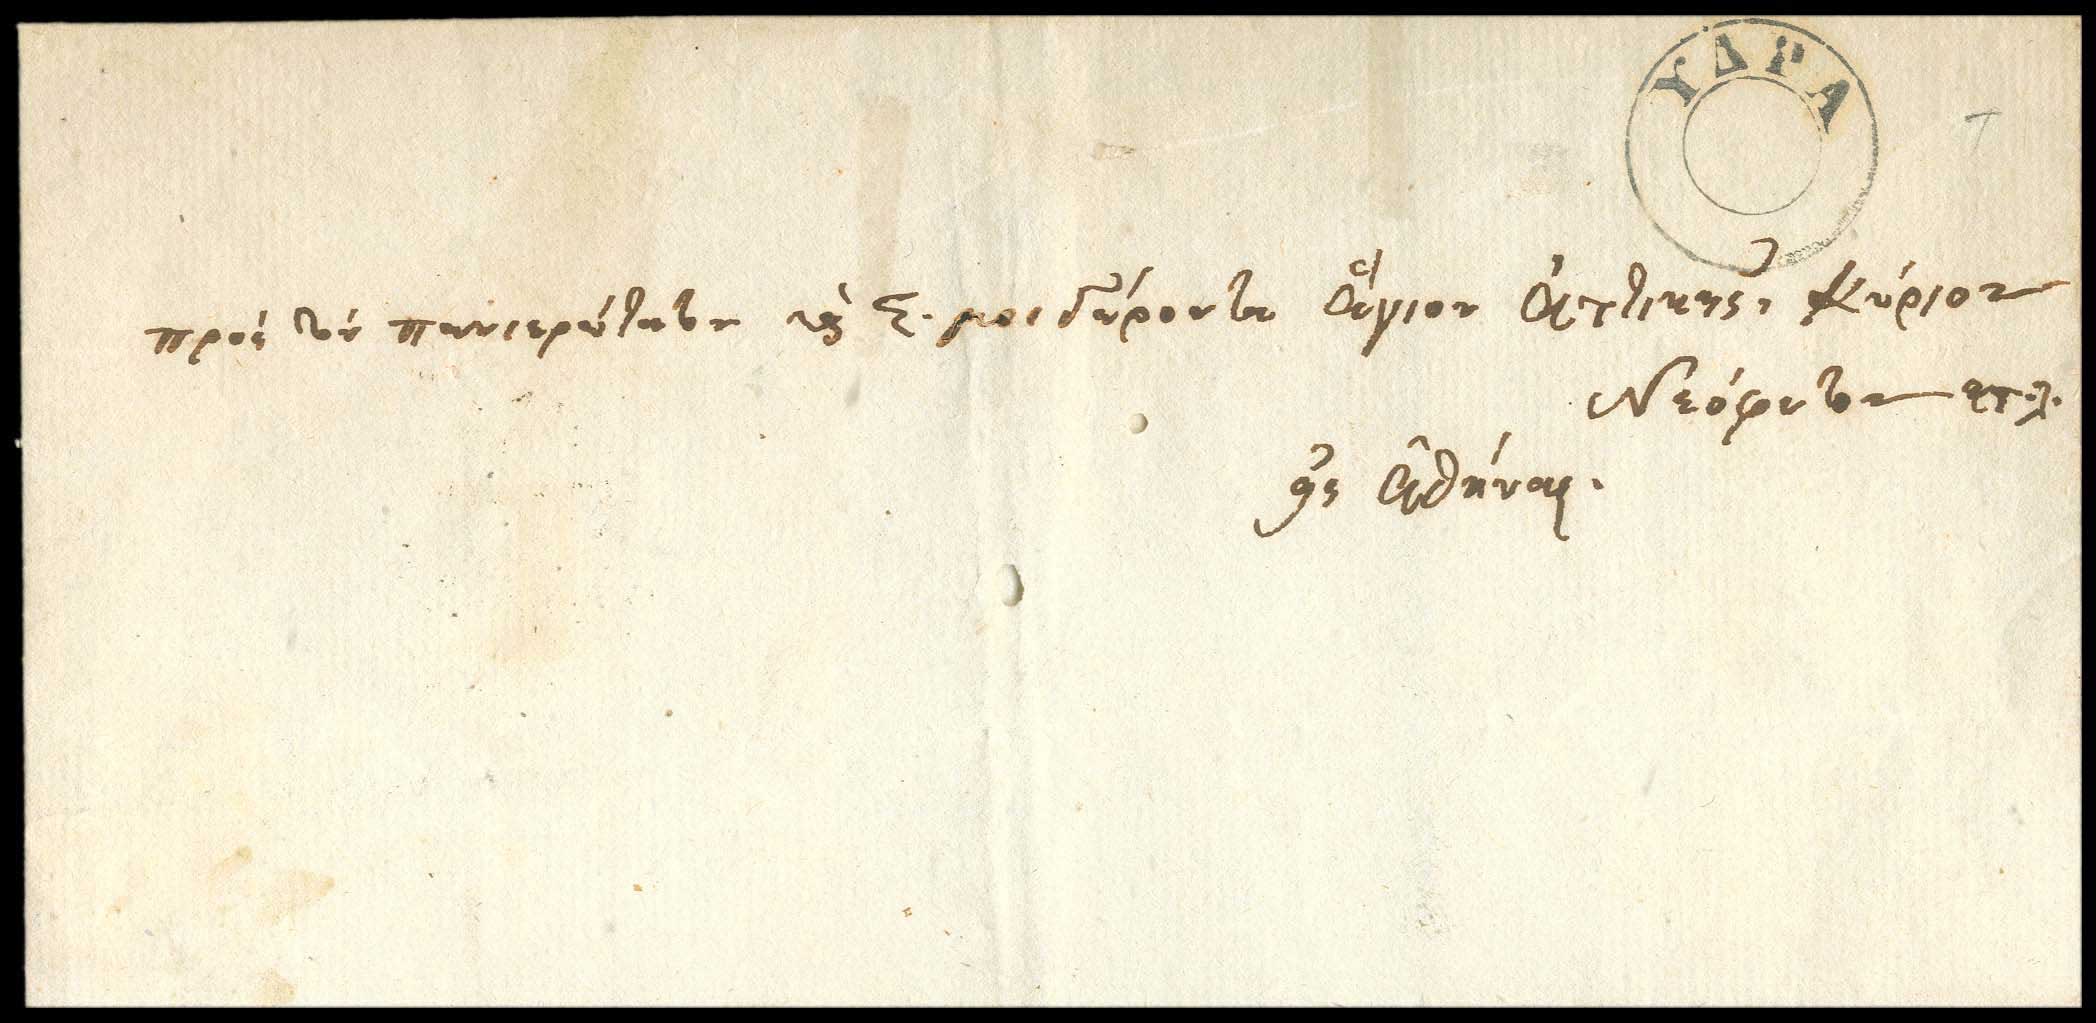 ΥΔΡΑ
Τ
πρὸς τὸν πανιερώτατον Σ. μοι γέροντα ἅγιον Ἀττικῆς, Κύριον
Νεόφυτον κτλ.
εἰς Ἀθήνας.